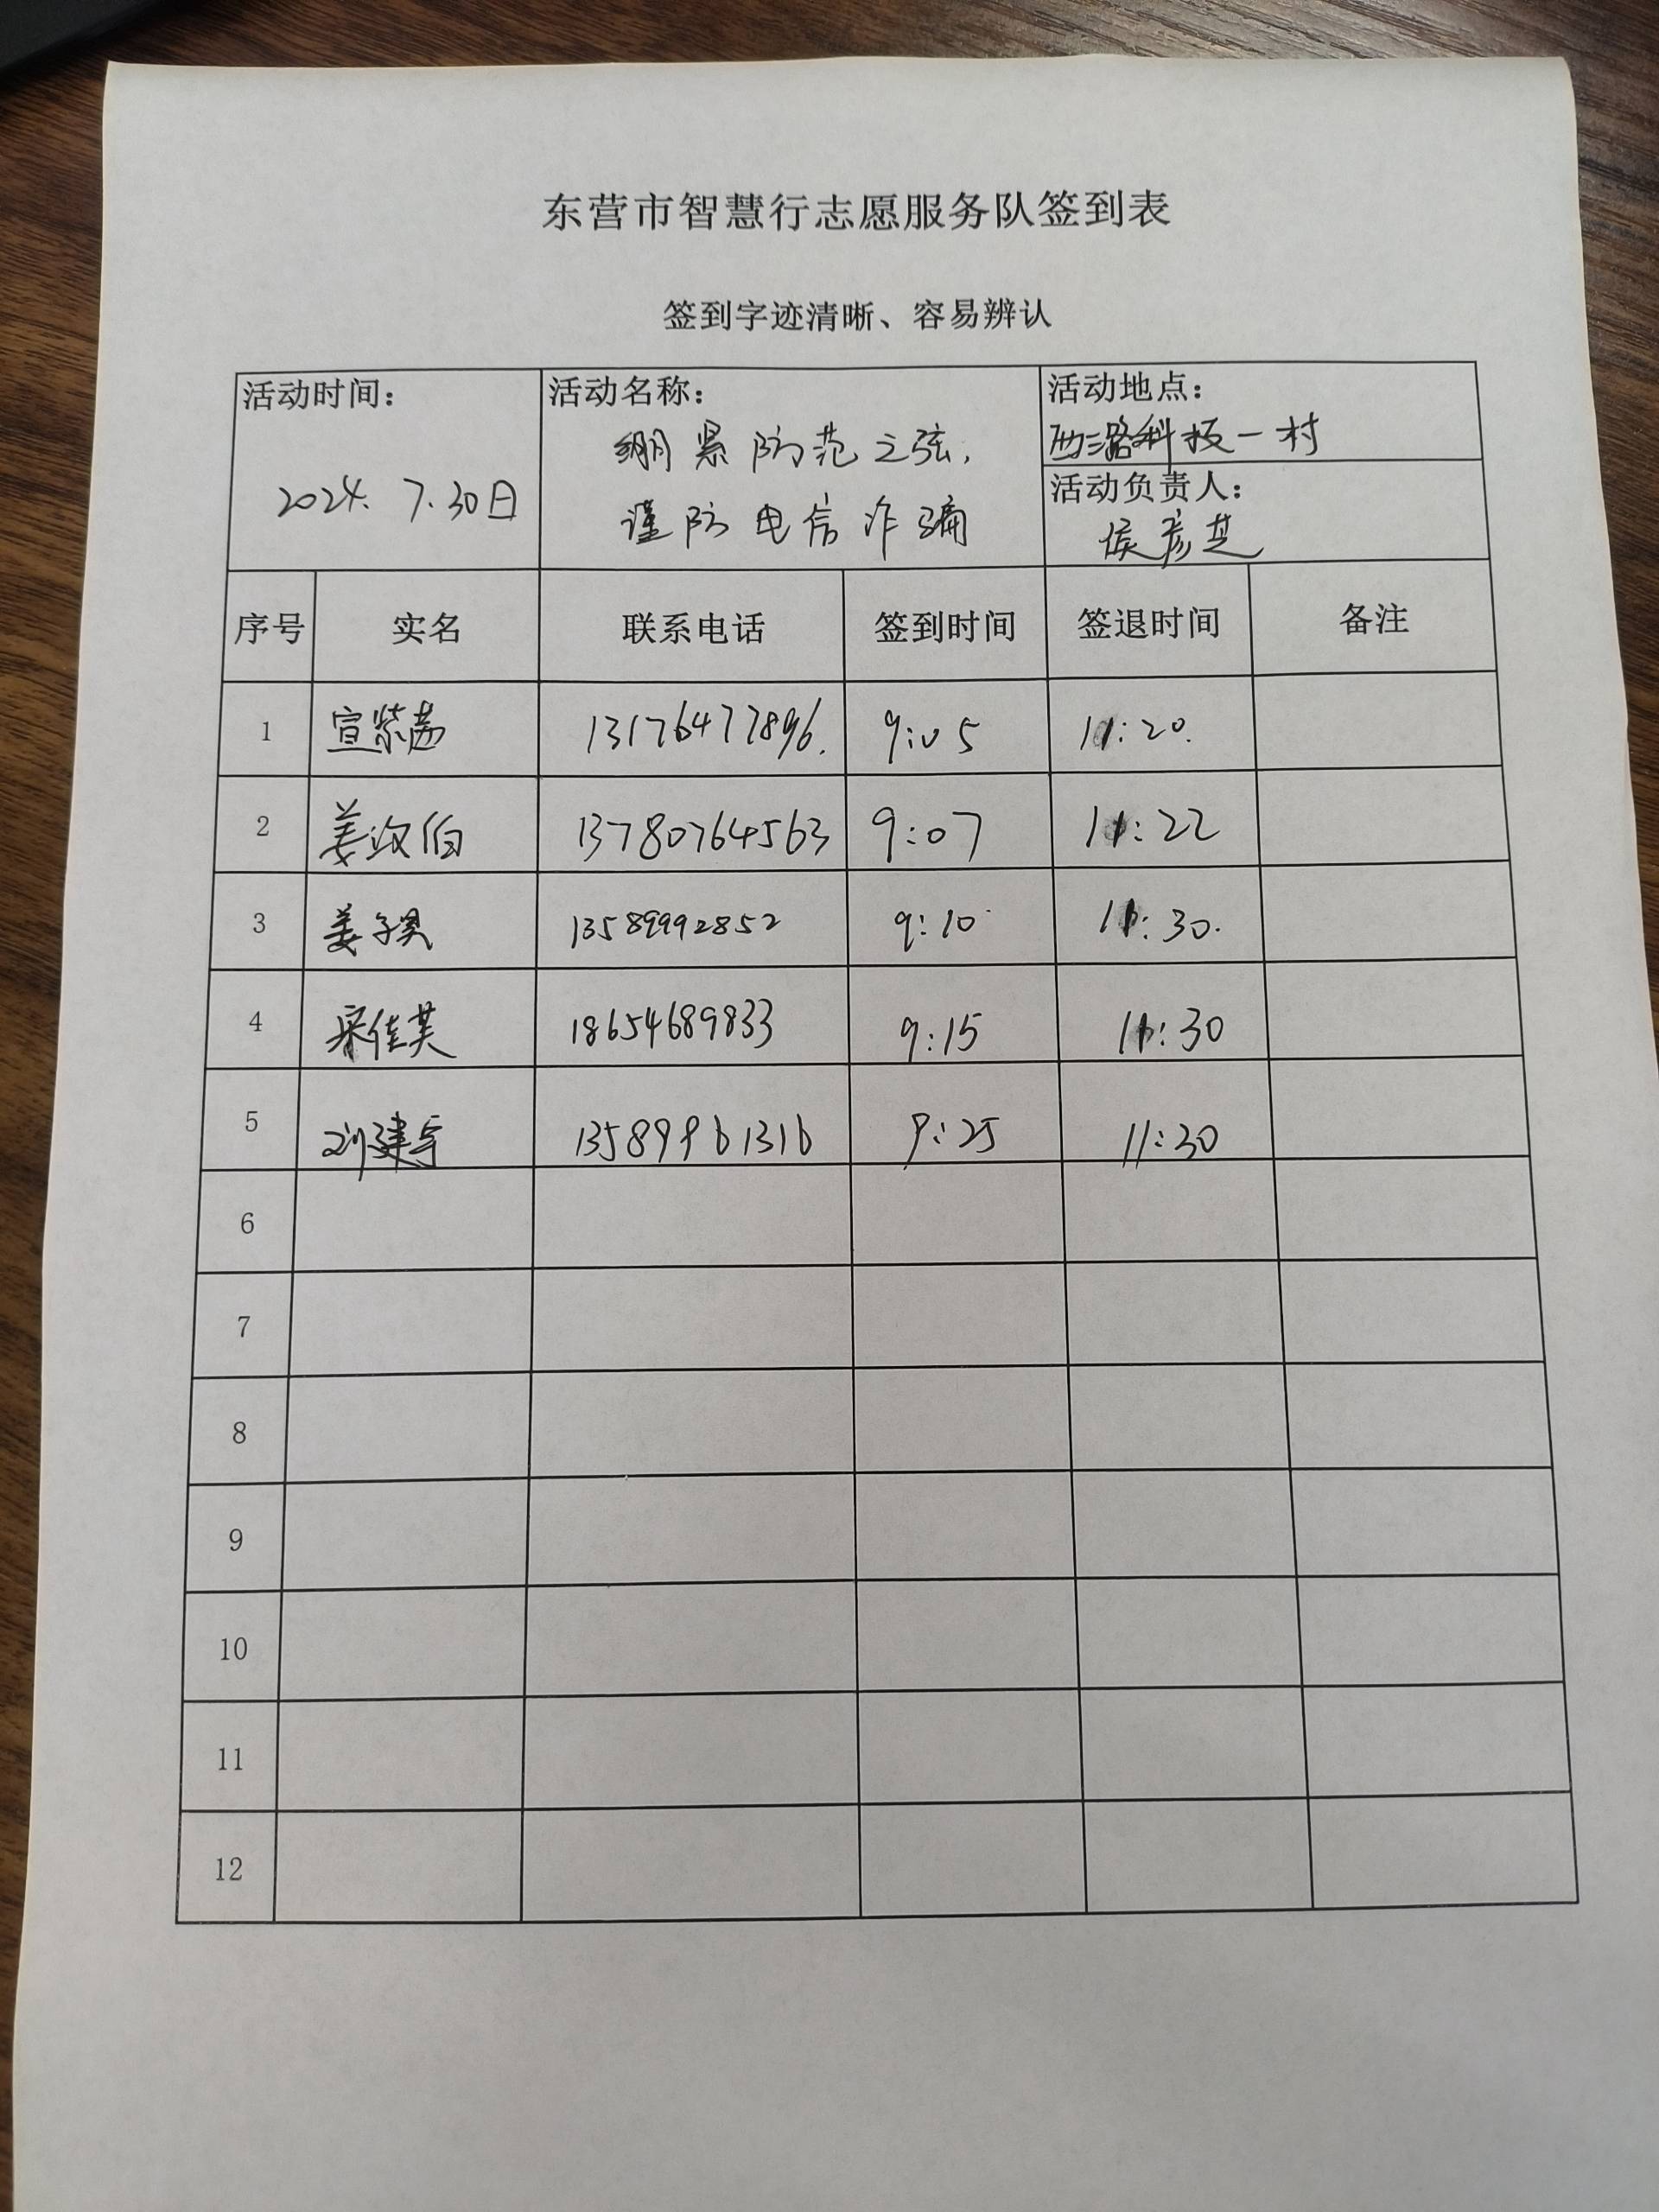 东营市智慧行志愿服务队签到表
签到字迹清晰、容易辨认
活动时间： 活动名称： 活动地点：
2024. 7.30日 绷紧防范之弦， 西二路科技一村
谨防电信诈骗 活动负责人：
侯彦芝
序号 实名 联系电话 签到时间 签退时间 备注
1 宣紫茜 13176477896. 9:05 11:20.
2 姜汶伯 13780764563 9:07 11:22
3 姜子 13589992852 9:10 11:30.
4 宋佳芙 18654689833 9:15 11:30
5 刘建宇 13589961316 9:25 11:30
6
7
8
9
10
11
12